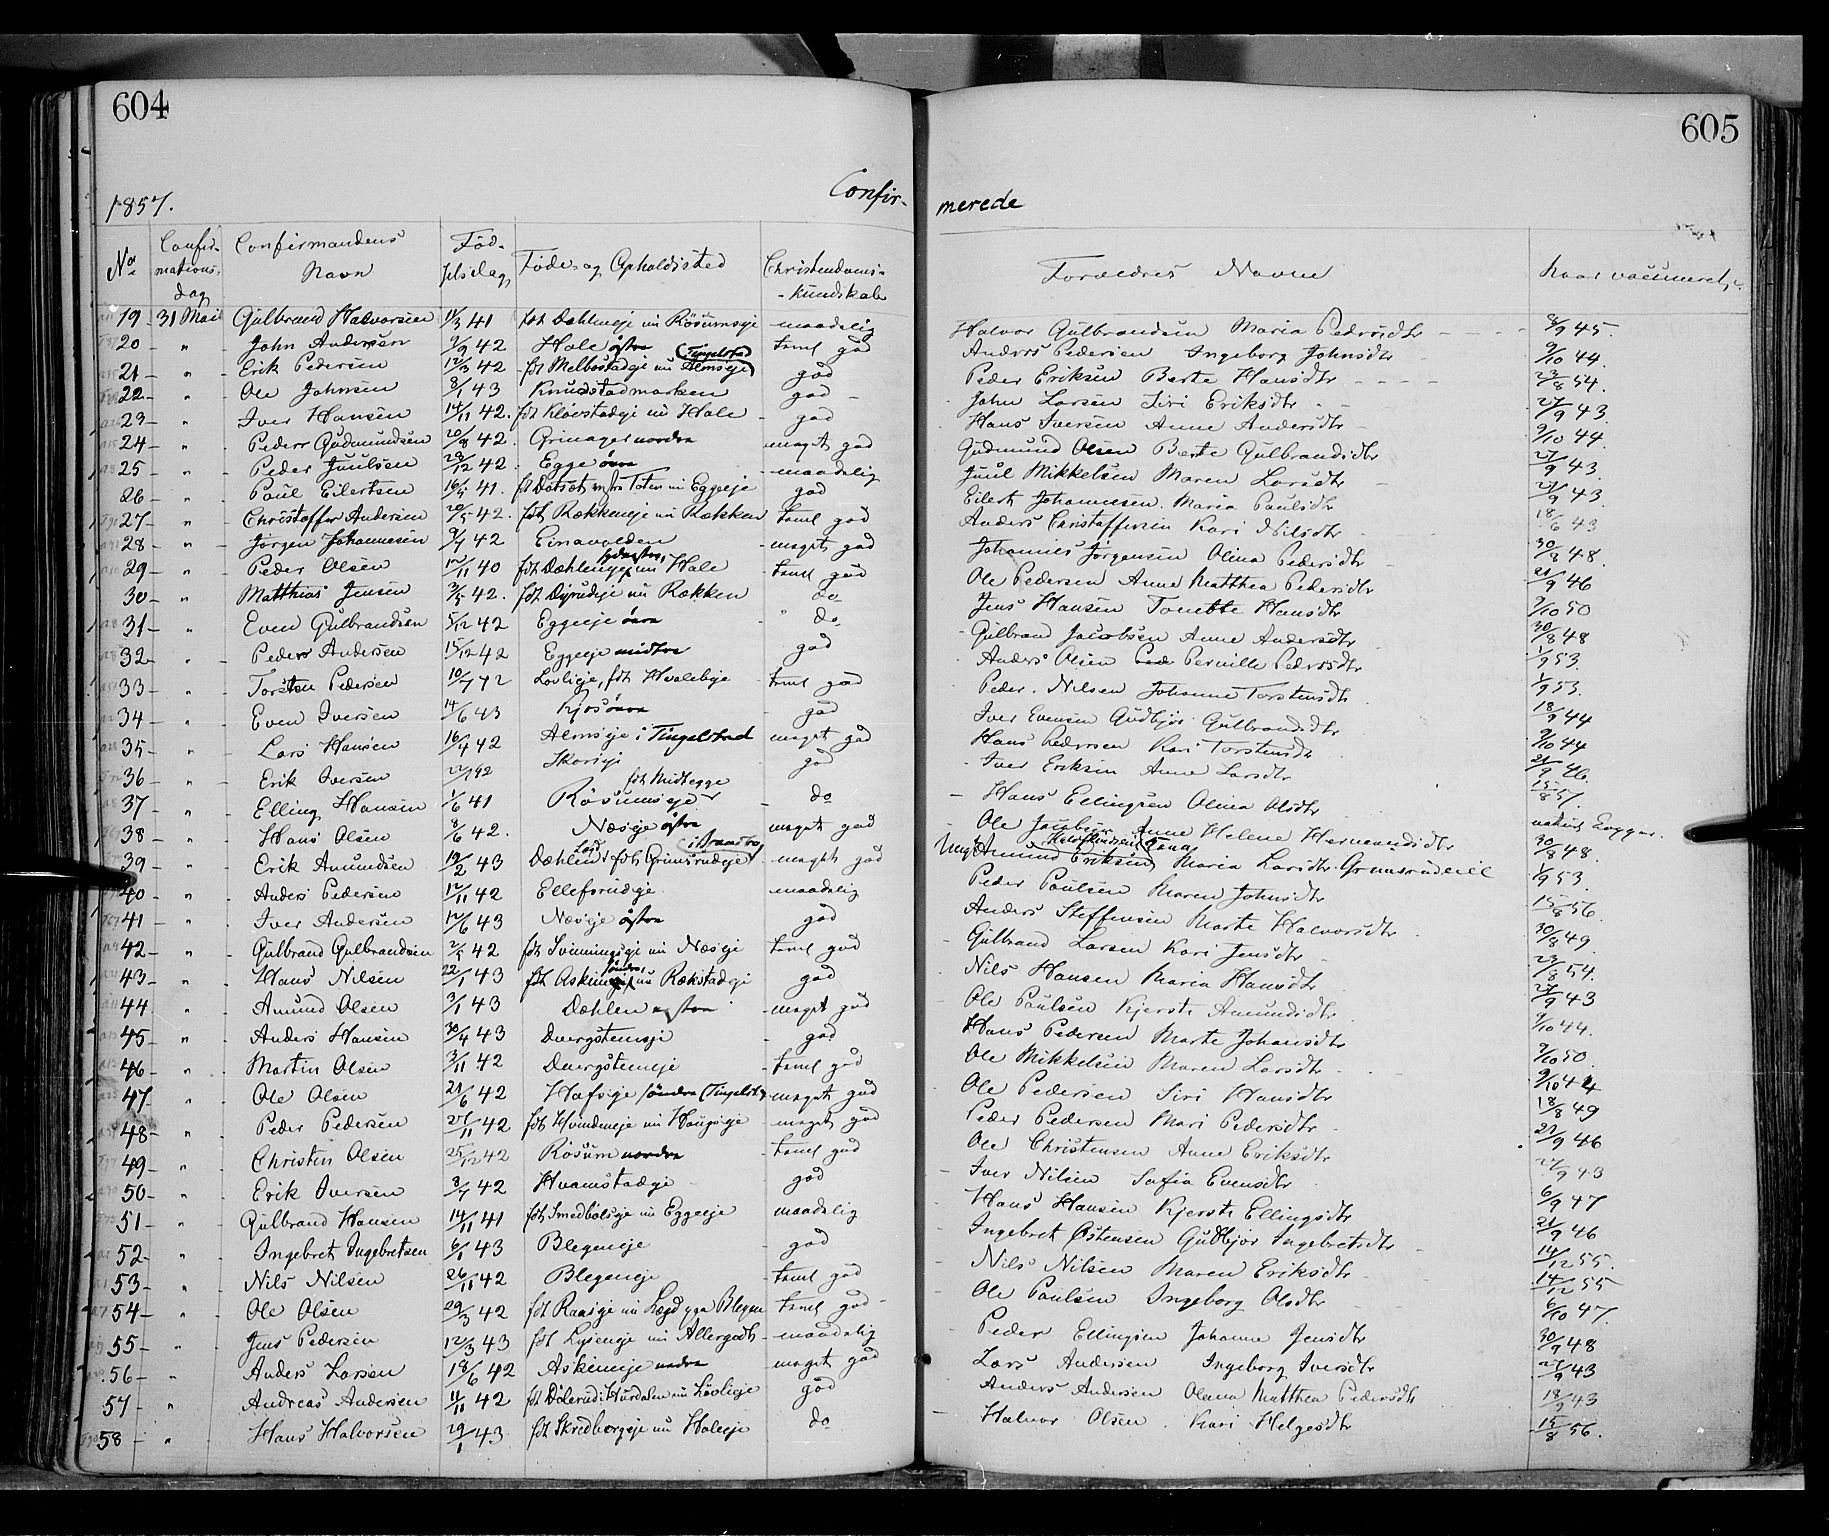 604
605
1857.
Confir-
merede
No
Confir-mations-dag
Confirmandens Navn
Fød-selsdag
Føde- og Opholdssted
Christendoms-kundskab
Forældres Navne
naar vaccineret
19 31 Mai Gulbrand Halvorsen 11/3 41 fdt Dæhleneje nu Rösumseje maadelig Halvor Gulbrandsen Maria Pedersdtr 8/9 45.
20 " John Andersen 9/9 42 Hole østre temel god Anders Pedersen Ingeborg Johnsdtr 9/10 44.
21 " Erik Pedersen 12/3 42 fdt Melbostadeje nu Almseje (Tingelstad) god Peder Eriksen Berte Hansdtr 23/8 54.
22 " Ole Johnsen 8/1 43 Knudstadmarken god John Larsen Siri Eriksdtr
23 " Iver Hansen 14/11 42. fdt Kløvstadeje nu Hole god Hans Iversen Anne Andersdtr 27/9 43
24 " Peder Gudmundsen 20/8 42. Grinager nordre meget god Gudmund Olsen Berte Gulbrandsdtr 9/10 44.
25 " Peder Juulsen 28/12 42. Egge øvre maadelig Juul Mikkelsen Maren Larsdtr 27/9 43.
26 " Paul Eilertsen 16/5 41. nu Eggeeje god Eilert Johannesen Maria Paulsdtr 27/9 43
27 " Christoffer Andersen 20/5 42. fdt Rækkeneje nu Rækken temel god Anders Christoffersen Kari Nilsdtr 18/6 43
28 " Jørgen Johannesen 9/7 42 Einavolden meget god Johannes Jørgensen Olina Pedersdtr 30/8 48.
29 " Peder Olsen 12/11 40 fdt Dæhleneje nu Hole temel god Ole Pedersen Anne Matthea Pedersdtr 21/9 46
30 " Matthias Jensen 3/5 42. fdt Dyrudeje nu Rækken do Jens Hansen Tonette Hansdtr 9/10 50
31 " Even Gulbrandsen 5/12 42 Eggeeje øvre do Gulbrand Jacobsen Anne Andersdtr 30/8 48
32 " Peder Andersen 15/12 42 Eggeeje midtre god Anders Olsen Pernille Pedersdtr 1/9 53.
33 " Torsten Pedersen 10/7 42 Lovlieje, fdt Hvalebyeje temel god Peder Nilsen Johanne Torstensdtr 1/9 53.
34 " Even Iversen 14/6 43 Kjos øvre god Iver Evensen Gudbjør Gulbrandsdtr 18/9 44
35 " Lars Hansen 16/4 42 Almseje i Tingelstad meget god Hans Pedersen Kari Torstensdtr 9/10 44
36 " Erik Iversen 22/1 42 Skorieje god Iver Eriksen Anne Larsdtr 21/9 46.
37 " Elling Hansen 1/6 41 Rösumseje fdt Midtegge do Hans Ellingsen Olina Olsdtr 15/8 57.
38 " Hans Olsen 8/6 42. Næseje østre meget god Ole Jacobsen Anne Helene Hermandsdtr naturl. Kopper.
39 " Erik Amundsen 19/2 43 Dæhlen fdt Grimsrudeje i Brandbu meget god Ungk Amund Eriksen Maria Larsdtr Grimsrudeie 30/8 48.
40 " Anders Pedersen 12/11 42 Ellefsrudeje maadelig Peder Paulsen Maren Johnsdtr 1/9 53.
41 " Iver Andersen 12/6 43 Næseje østre god Anders Steffensen Marte Halvorsdtr 15/8 56.
42 " Gulbrand Gulbrandsen 2/5 42 fdt Svinningseje nu Næseje temel god Gulbrand Larsen Kari Jensdtr 30/8 49
43 " Hans Nilsen 22/1 43 fdt Askimeje søndre nu Rækstadeje god Nils Hansen Maria Hansdtr 23/8 54.
44 " Amund Olsen 3/1 43 Dæhlen østre meget god Ole Paulsen Kjersti Amundsdtr 27/9 43
45 " Anders Hansen 30/4 43 Dvergstenseje god Hans Pedersen Marte Johansdtr 9/10 44.
46 " Martin Olsen 3/11 42 Dvergsteneje temel god Ole Mikkelsen Maren Larsdtr 9/10 50.
47 " Ole Olsen 21/6 42 Hofseje søndre (Tingelst) meget god Ole Pedersen Siri Hansdtr 9/10 44
48 " Peder Pedersen 27/11 42 fdt Hvindeneje nu Haugseje meget god Peder Pedersen Mari Pedersdtr 18/8 49
49 " Christen Olsen 25/12 42 Rösum nordre temel god Ole Christensen Anne Eriksdtr 21/9 46
50 " Erik Iversen 8/7 42 Hvamstadeje god Iver Nilsen Sofia Evensdtr 27/9 43
51 " Gulbrand Hansen 14/11 41 fdt Smedbölseje nu Eggeeje maadelig Hans Hansen Kjersti Ellingsdtr 6/9 47
52 " Ingebret Ingebretsen 6/1 43 Blegeneje god Ingebret Østensen Gudbjør Ingebretsdtr 21/9 46
53 " Nils Nilsen 26/11 42 Blegeneje temel god Nils Nilsen Maren Eriksdtr 14/12 55.
54 " Ole Olsen 29/3 42 fdt Raaseje nu Lægd paa Blegen temel god Ole Paulsen Ingeborg Olsdtr 14/12 55
55 " Jens Pedersen 12/3 43 fdt Lyseneje nu Allergodt maadelig Peder Ellingsen Johanne Jensdtr 6/10 47.
56 " Anders Larsen 18/6 42 Askimeje nedre meget god Lars Andersen Ingeborg Iversdtr 30/9 48
57 " Andreas Andersen 11/11 42 fdt Dølerud i Hurdalen nu Lövlieje god Anders Andersen Olena Matthea Pedersdtr 27/9 43
58 " Hans Halvorsen 29/1 43. fdt Skredbergeje nu Holeeje do Halvor Olsen Kari Helgesdtr 18/9 43
15/8 56.